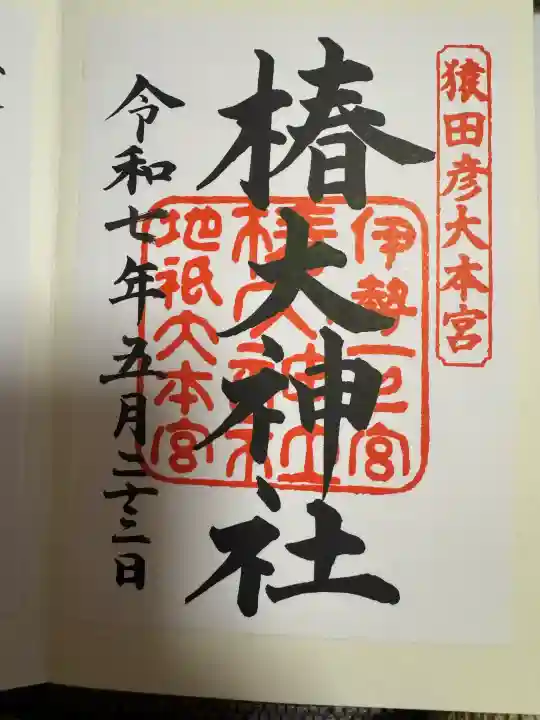 猿田彦大本宮
椿大神社
伊勢一之宮
椿大神社
地祇大本宮
令和七年五月二十三日